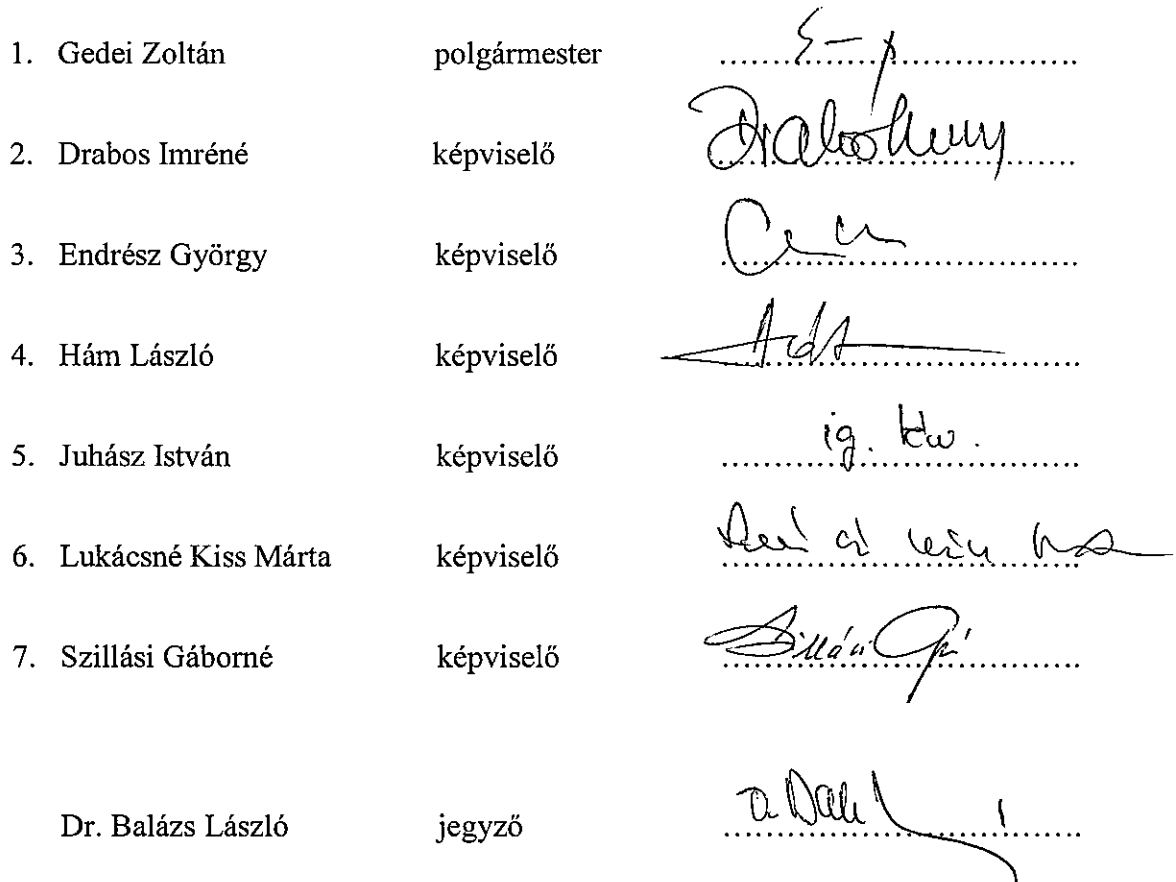 1. Gedei Zoltán polgármester
2. Drabos Imréné képviselő
3. Endrész György képviselő
4. Hám László képviselő
5. Juhász István képviselő ig. 
6. Lukácsné Kiss Márta képviselő
7. Szillási Gáborné képviselő
Dr. Balázs László jegyző